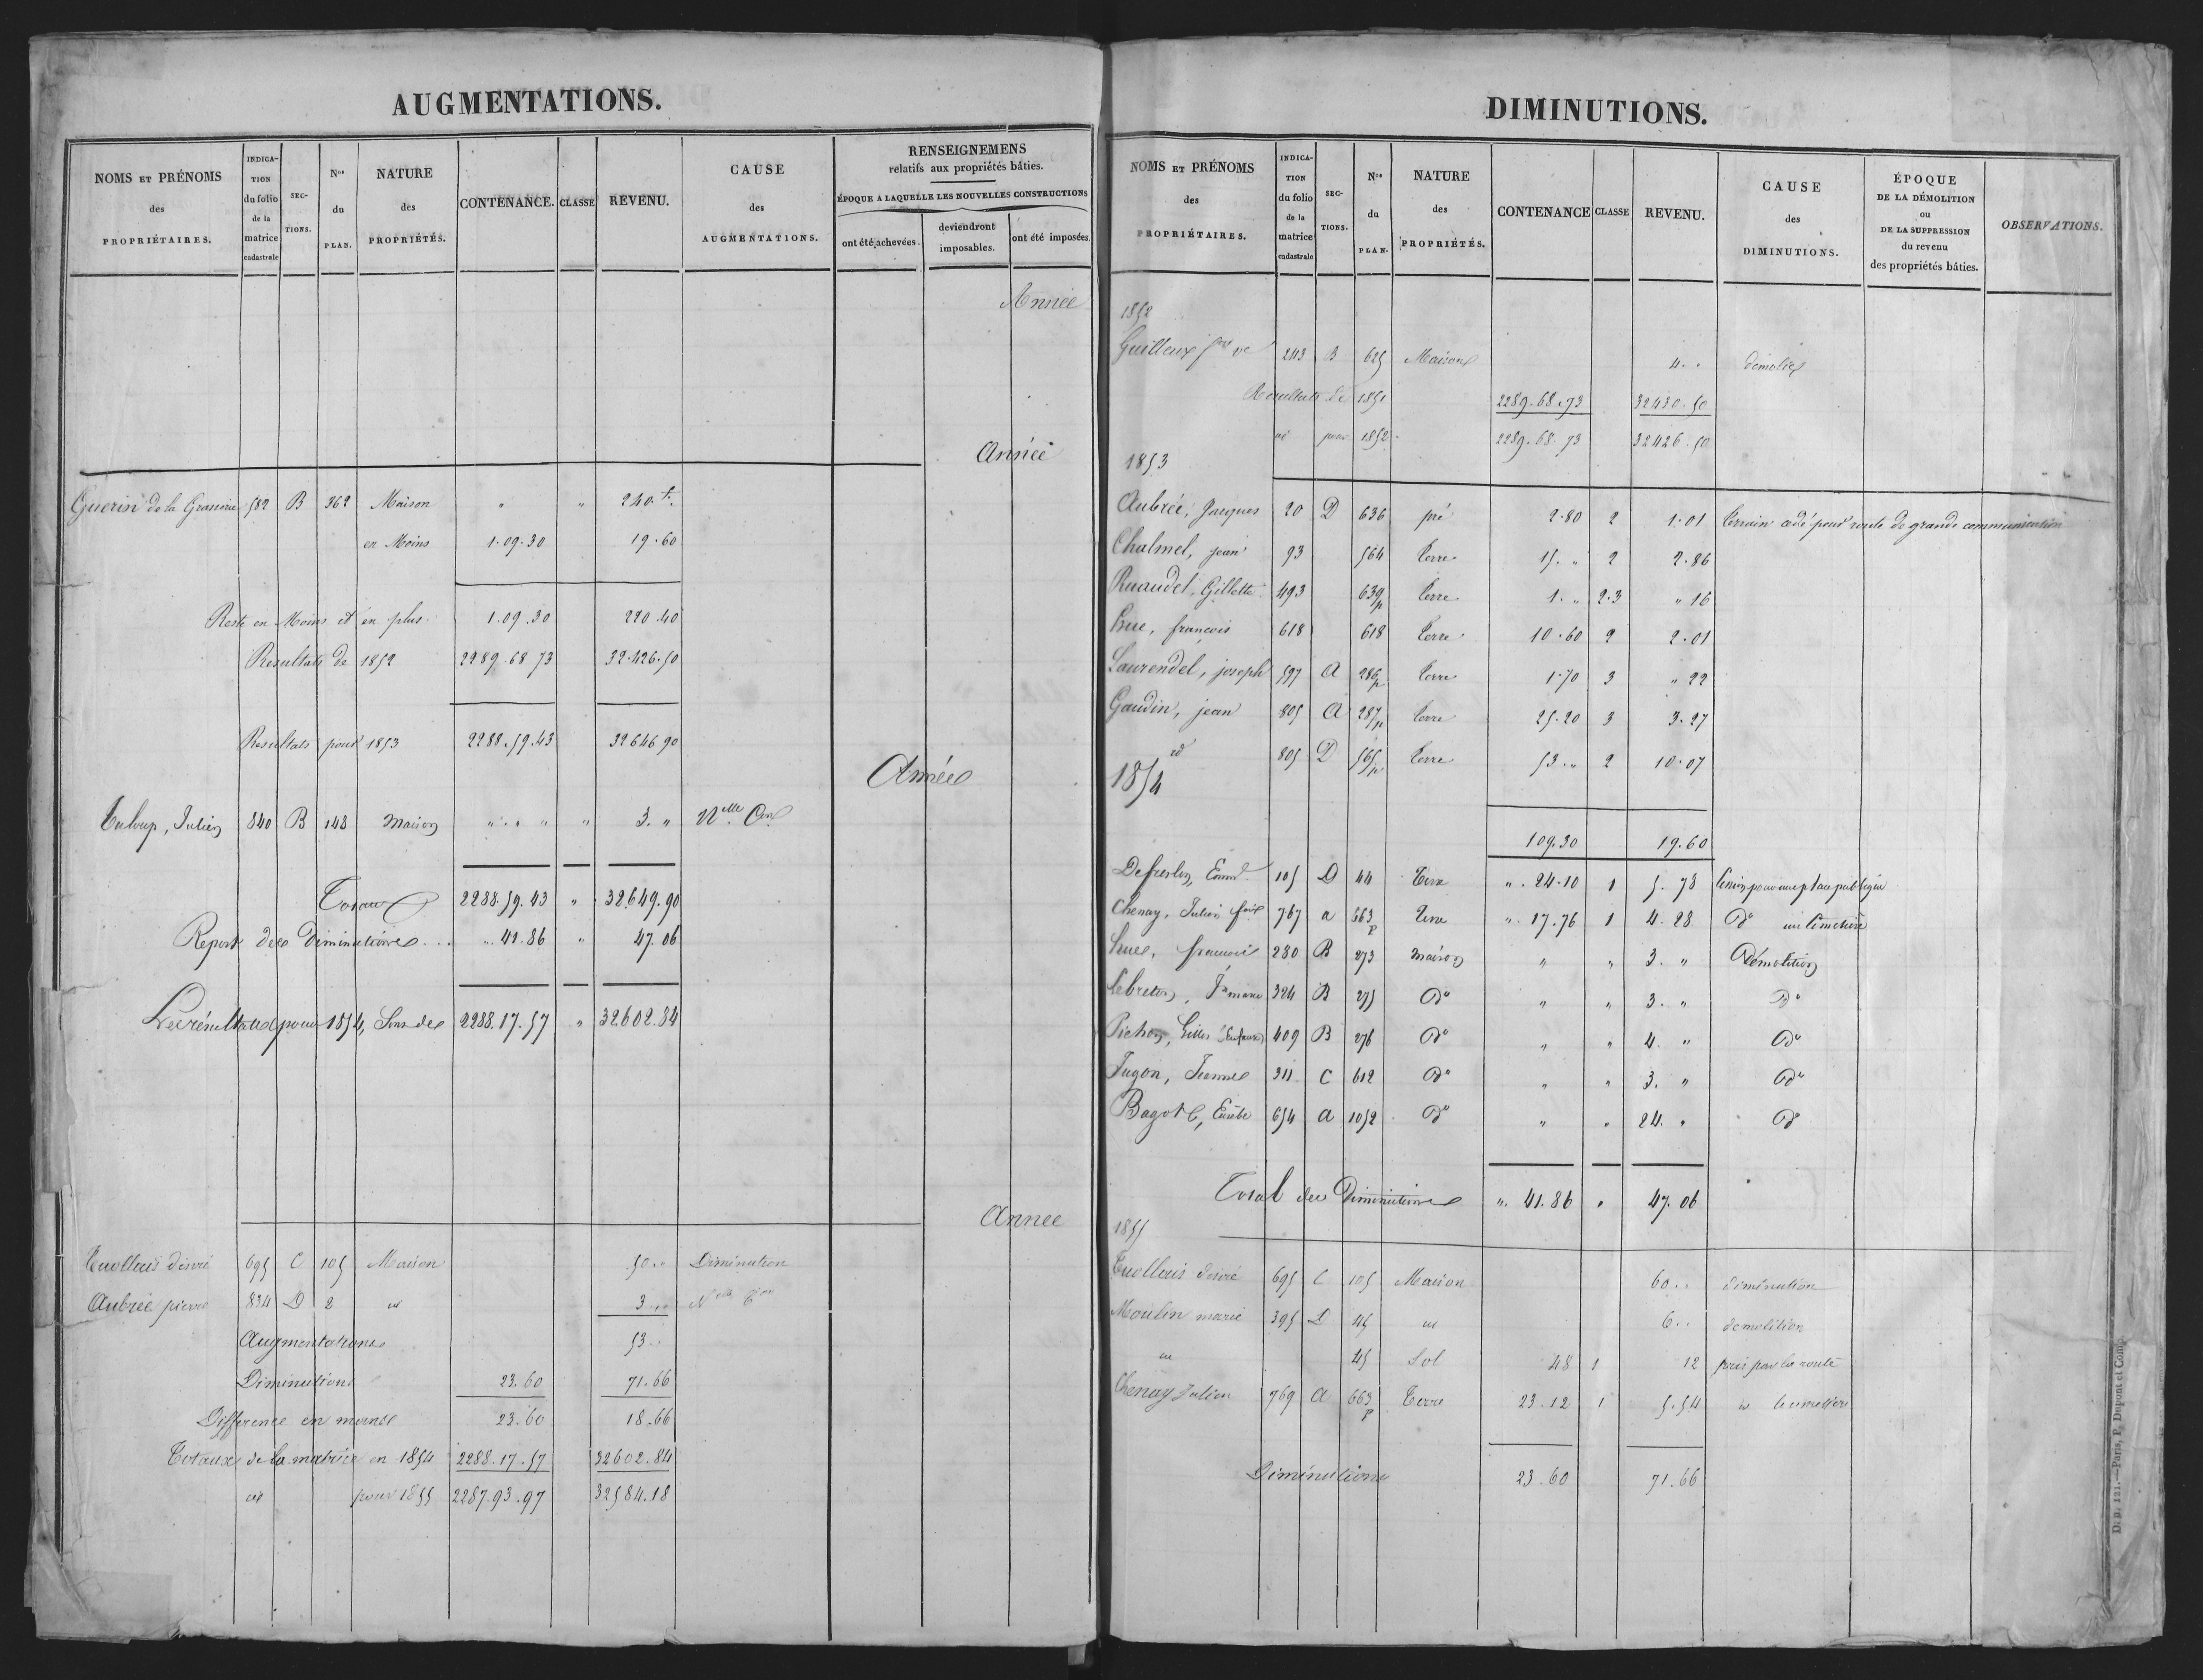 AUGMENTATIONS.
NOMS ET PRÉNOMS des PROPRIÉTAIRES. INDICATION du folio de la matrice cadastrale SECTIONS. Nos du PLAN. NATURE des PROPRIÉTÉS. CONTENANCE. CLASSE REVENU. CAUSE des AUGMENTATIONS. RENSEIGNEMENS relatifs aux propriétés bâties.
ÉPOQUE A LAQUELLE LES NOUVELLES CONSTRUCTIONS
ont été achevées. deviendront imposables. ont été imposées.
Année
Année
Guerin de la Grasserie 582 B 362 Maison " " 240.
en Moins 1.09.30 19.60
Reste en Moins et en plus 1.09.30 220.40
Resultats de 1852 2289.68 73 32.426.50
Resultats pour 1853 2288.59.43 32646 90
Année
Juloup, Julien 840 B 148 maison " " " " 3. " Nlle Con
Totaux 2288.59.43 " 32649.90
Report des Diminutions .. ".41.86 " 47.06
Les résultats pour 1854, Sont de 2288.17.57 " 32602.84
Année
Tuollais désiré 695 C 105 Maison 50.. Diminution
Aubrée pierre 834 D 2 id 3 .. Nelle Con
Augmentations 53..
Diminutions 23.60 71.66
Difference en moins 23.60 18.66
Totaux de la matrice en 1854 2288.17.57 32602.84
id pour 1855 2287.93.97 32584.18
DIMINUTIONS.
NOMS ET PRÉNOMS des PROPRIÉTAIRES. INDICATION du folio de la matrice cadastrale SECTIONS. Nos du PLAN. NATURE des PROPRIÉTÉS. CONTENANCE CLASSE REVENU. CAUSE des DIMINUTIONS. ÉPOQUE DE LA DÉMOLITION ou DE LA SUPPRESSION du revenu des propriétés bâties. OBSERVATIONS.
1852
Guilloux fois ve 243 B 625 Maison 4.. démolie
Resultats de 1851 2289.68.73 32430.50
id pour 1852 2289.68.73 32426.50
1853
Aubrée, Jacques 20 D 636 pré 2.80 2 1.01 terrain cédé pour route de grande communication
Chalmel, jean 93 564 terre 15. " 2 2.86
Ruaudel, Gillette 493 639p terre 1. " 2.3 " 16
hue, françois 618 618 terre 10.60 2 2.01
Laurendel, joseph 597 A 286p terre 1.70 3 " 22
Gaudin, jean 805 A 287p terre 25.20 3 3.27
id 805 D 565p terre 53. " 2 10.07
1854
109.30 19.60
105 D 44 Terre ". 24.10 1 5.78 terrain pour une place publique
Chenay, Julien fois 767 a 663p Terre ". 17.76 1 4.28 do un Cimetière
hue, francois 280 B 273 maison " " 3. " Démolition
Lebreton, 324 B 275 do " " 3. " do
Pichon, Gilles 409 B 276 do " " 4. " do
Jugon, Jeanne 311 C 612 do " " 3. " do
Bagot, 654 a 1052 do " " 24. " do
Total des Diminutions ". 41.86 " 47.06
1855
Tuollais désiré 695 C 105 Maison 60.. diminution
Moulin marie 395 D 45 id 6.. demolition
id 45 Sol 48 1 12 pris par la route
Chenay Julien 769 A 663p Terre 23.12 1 5.54 id
Diminutions 23.60 71.66
D. B. 121.—Paris, P. Dupont et Comp.